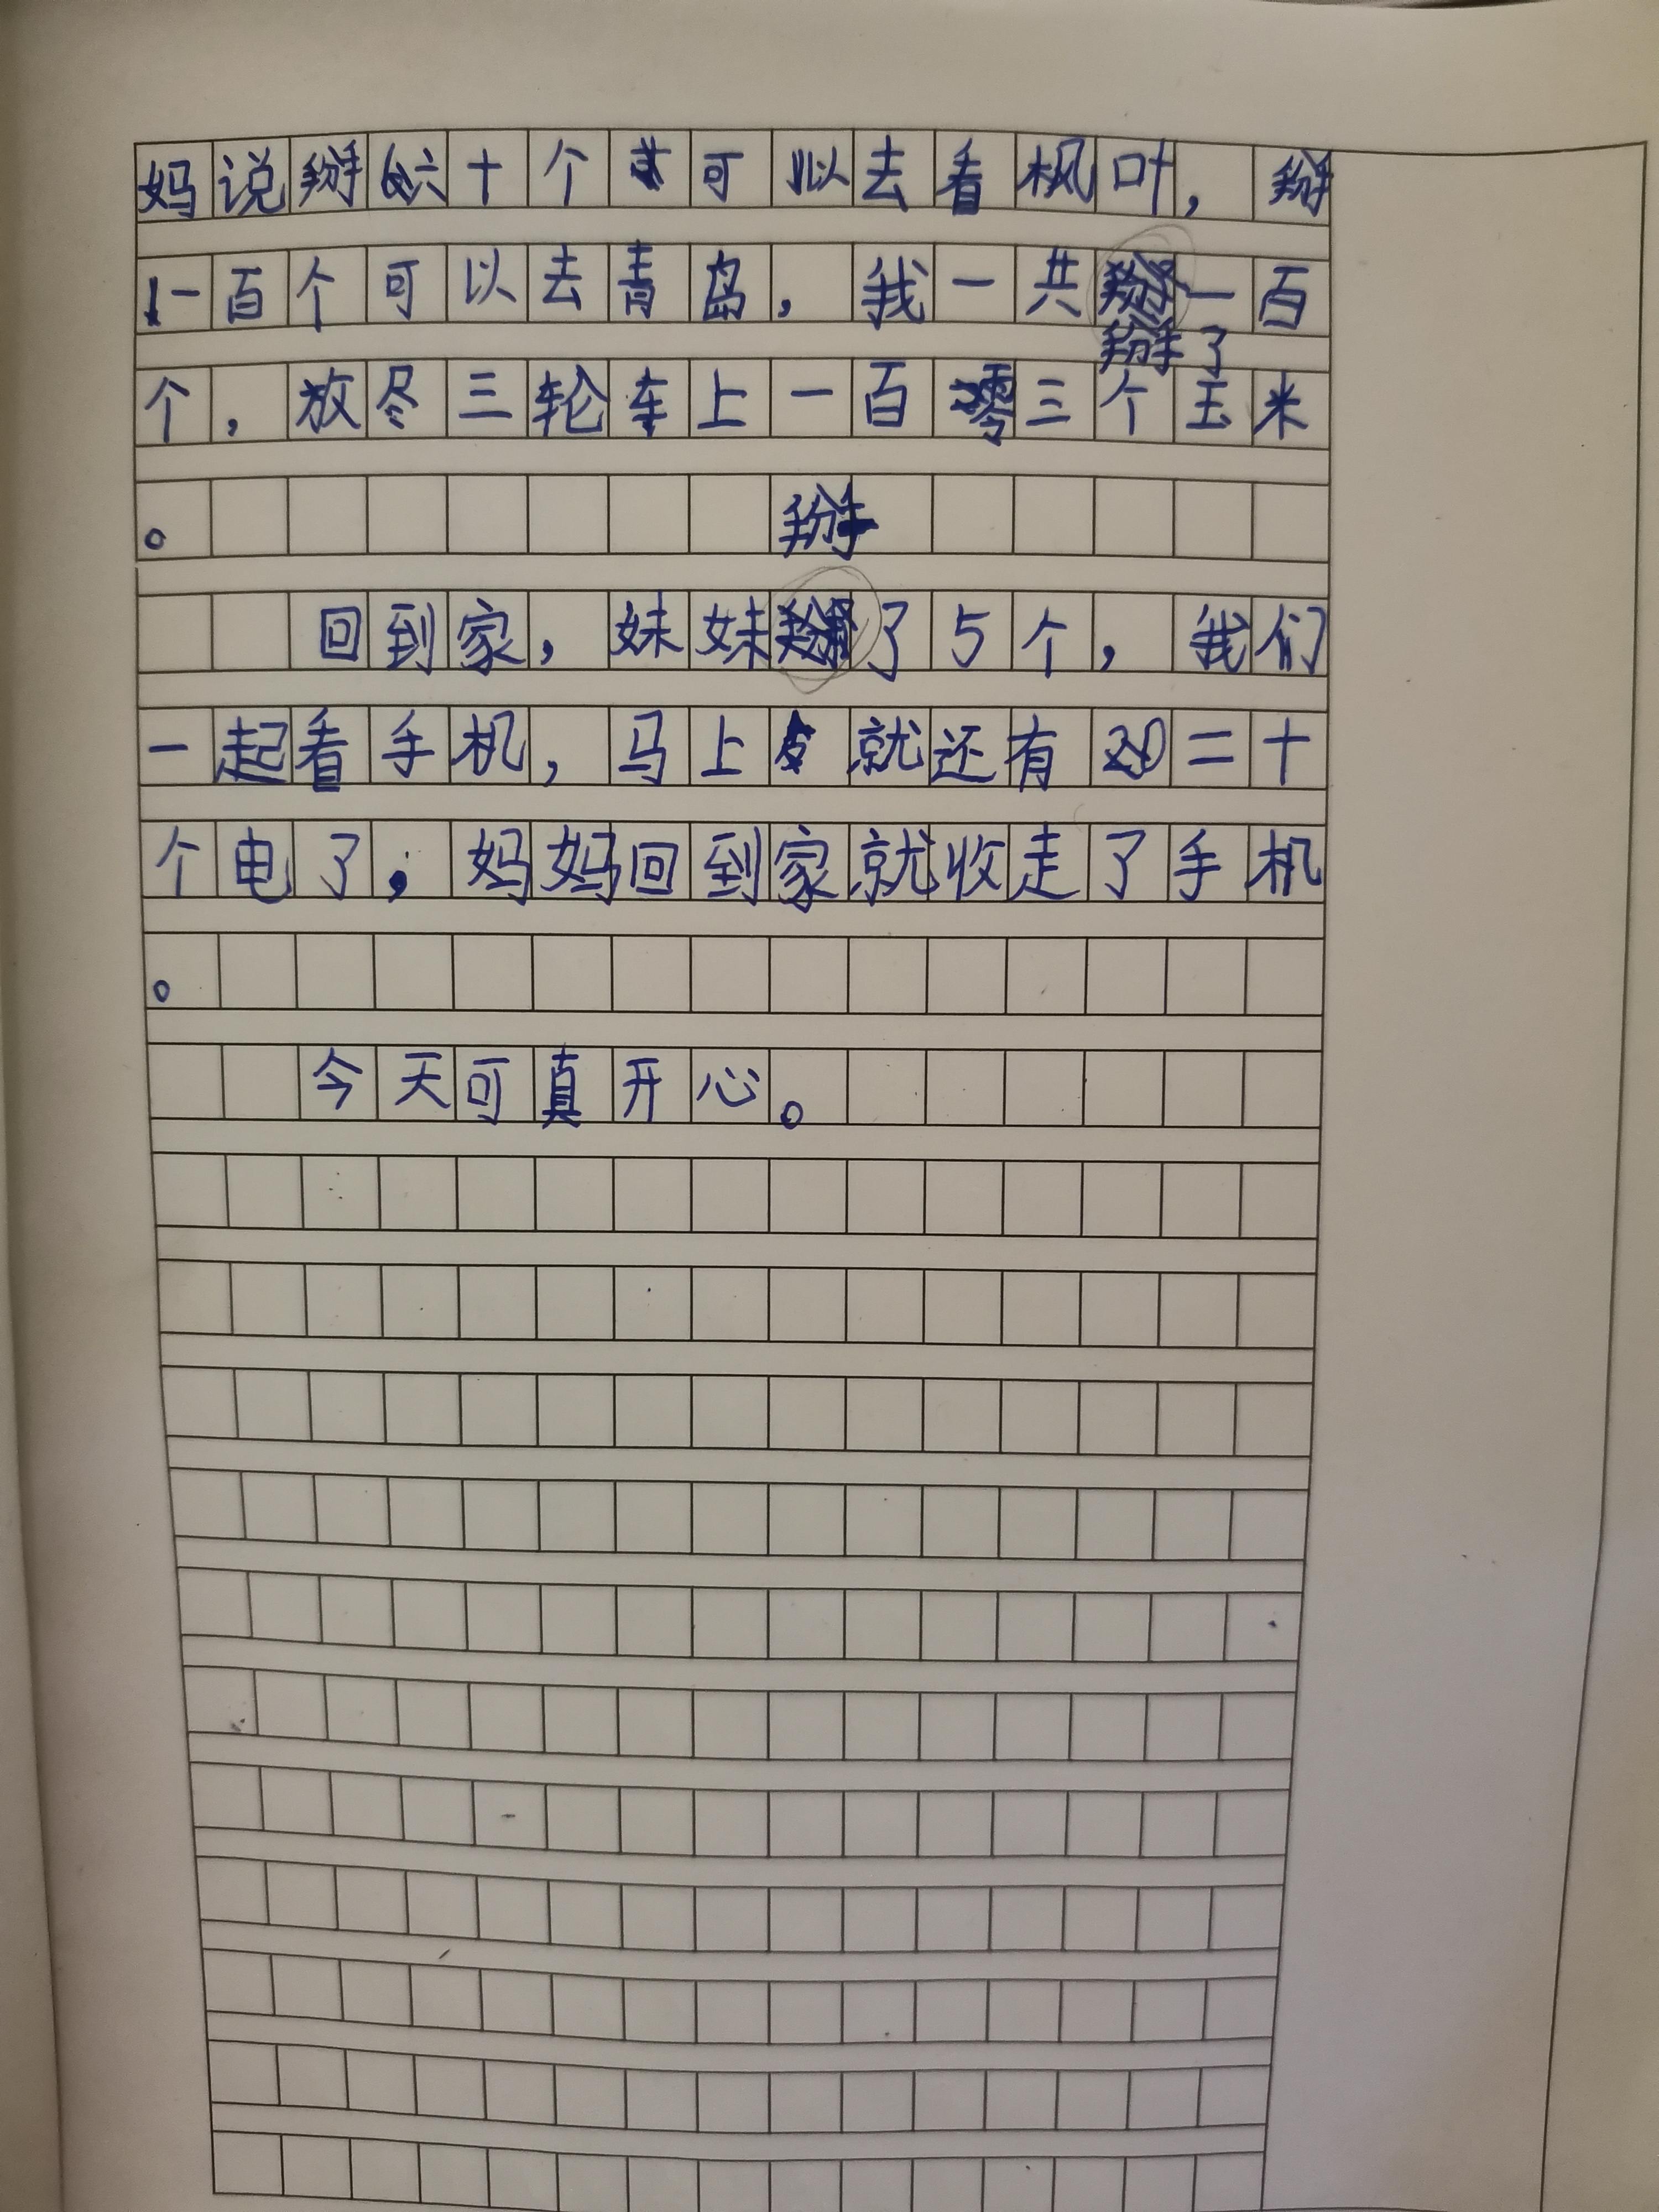 妈说掰六十个可以去看枫叶，掰
一百个可以去青岛，我一共掰了一百
个，放尽三轮车上一百零三个玉米
。
回到家，妹妹掰了5个，我们
一起看手机，马上就还有二十
个电了，妈妈回到家就收走了手机
。
今天可真开心。